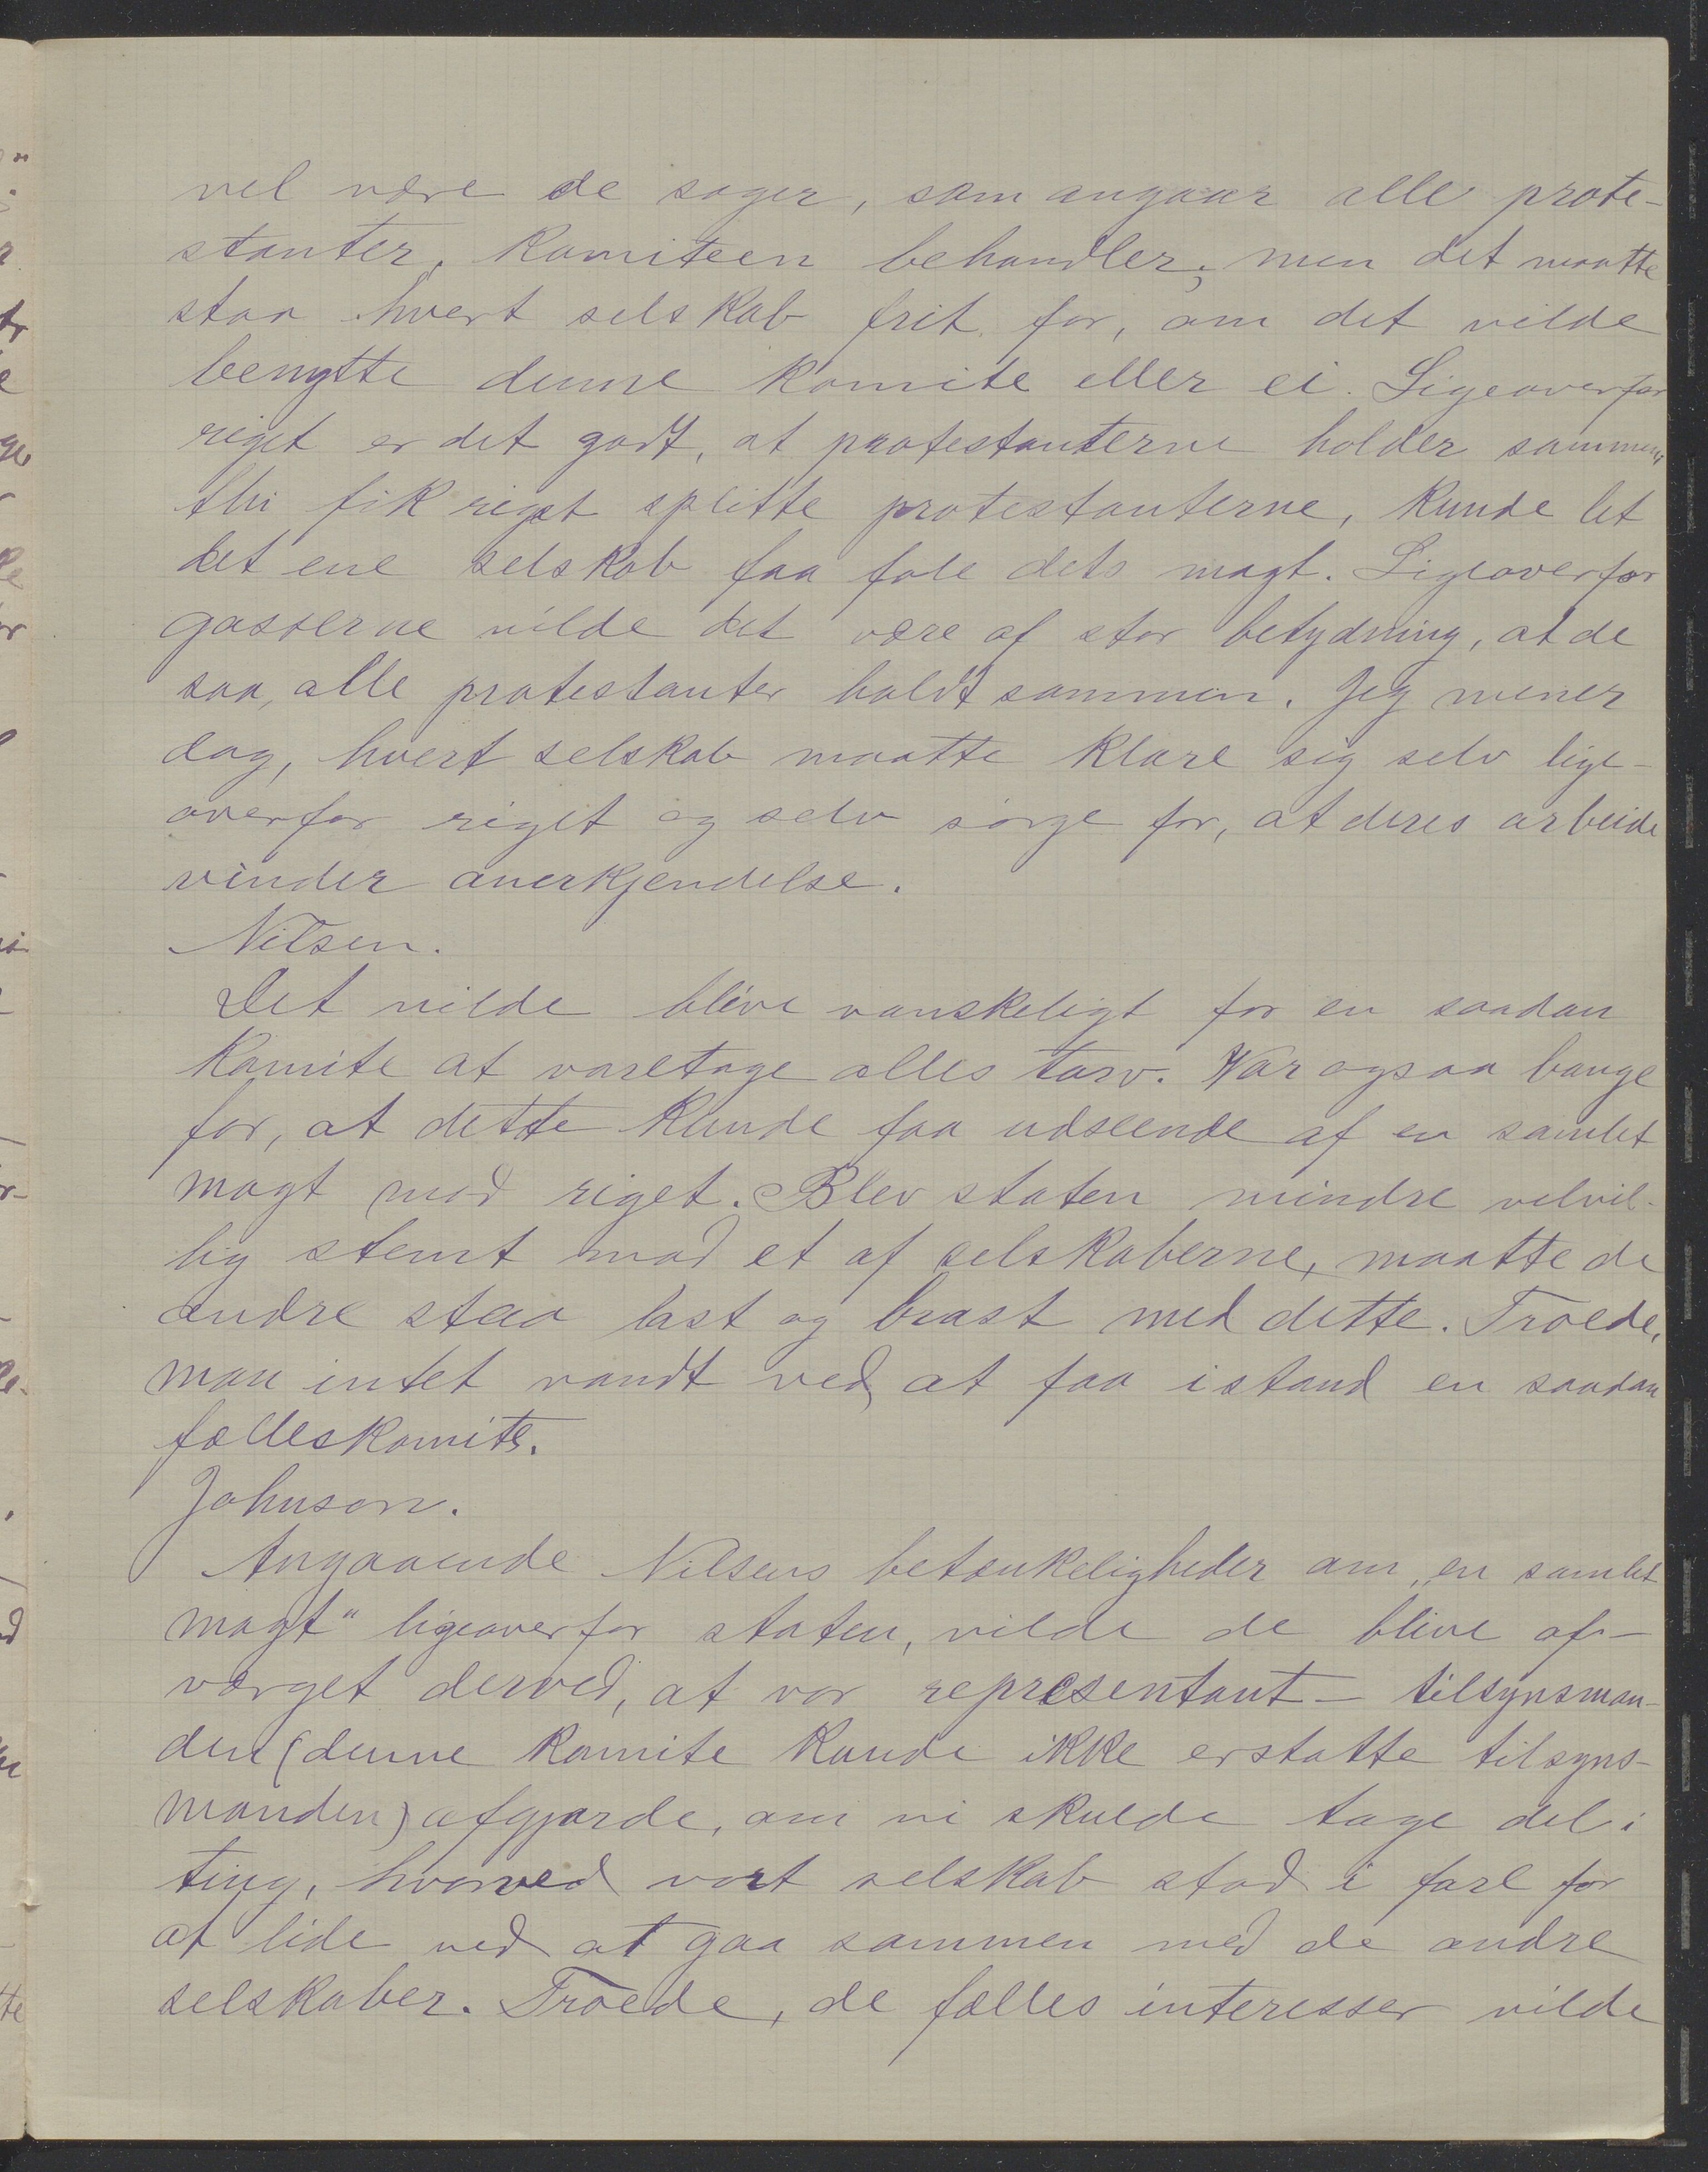 vel være de sager, som angaar alle prote-
stanter, Komiteen behandler; men det maatte
staa hvert selskab frit for, om det vilde
benytte denne Komite eller ei. Ligeoverfor
riget er det godt, at protestanterne holder sammen,
thi fik riget splitte protestanterne, Kunde let
det ene selskab faa føle dets magt. Ligeoverfor
gasserne vilde det være af stor betydning, at de
saa, alle protestanter holdt sammen. Jeg mener
dog, hvert selskab maatte Klare sig selv lige-
overfor riget og selv sørge for, at deres arbeide
vinder anerkjendelse.
Nilsen.
Det vilde blive vanskeligt for en saadan
Komite at varetage alles tarv. Var ogsaa bange
for, at dette Kunde faa udseende af en samlet
magt mod riget. Blev staten mindre velvil-
lig stemt mod et af selskaberne, maatte de
andre staa last og brast med dette. Troede,
man intet vandt ved at faa istand en saadan
fælleskomite.
Johnson.
Angaaende Nilsens betænkeligheder om „en samlet
magt" ligeoverfor staten, vilde de blive af-
værget derved, at vor representant – tilsynsman-
den (denne Komite Kunde ikke erstatte tilsyns-
manden) afgjorde, om vi skulde tage del i
ting, hvorved vort selskab stod i fare for
at lide ved at gaa sammen med de andre
selskaber. Troede, de fælles interesser vilde